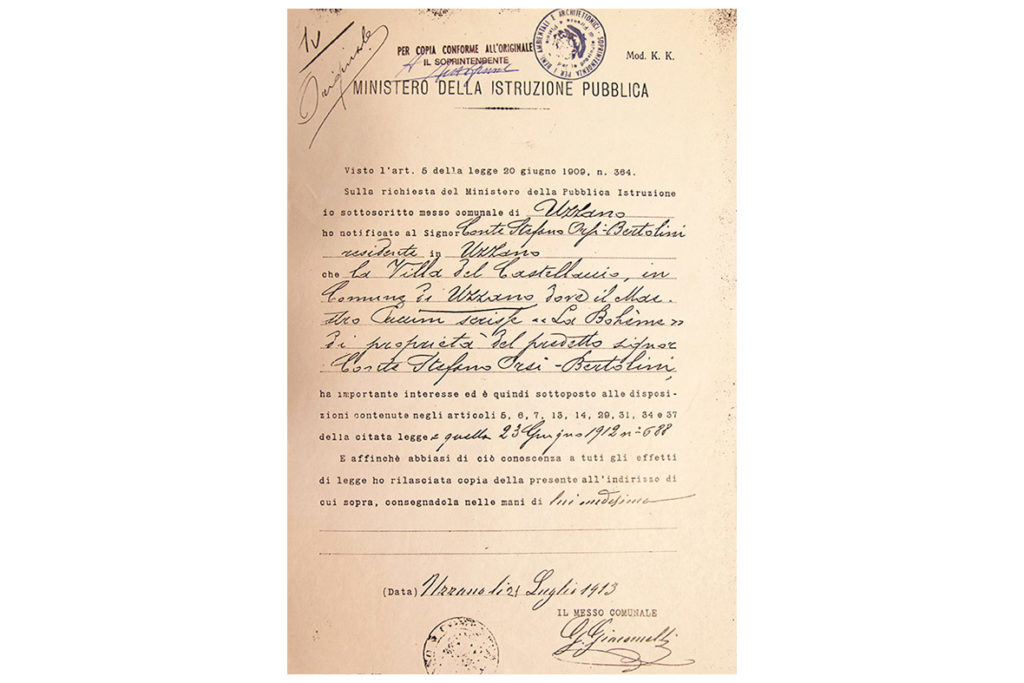 1v
Originale
PER COPIA CONFORME ALL'ORIGINALE
IL SOPRINTENDENTE
SOPRINTENDENZA PER I BENI AMBIENTALI E ARCHITETTONICI
Mod. K. K.
MINISTERO DELLA ISTRUZIONE PUBBLICA
Visto l'art. 5 della legge 20 giugno 1909, n. 364.
Sulla richiesta del Ministero della Pubblica Istruzione
io sottoscritto messo comunale di Uzzano
ho notificato al Signor Conte Stefano Orsi-Bertolini
residente in Uzzano
che la Villa del Castellaccio, in
Comune di Uzzano dove il Mae-
stro Puccini scrisse «La Bohème»
di proprietà del predetto signor
Conte Stefano Orsi-Bertolini,
ha importante interesse ed è quindi sottoposto alle disposi-
zioni contenute negli articoli 5, 6, 7, 13, 14, 29, 31, 34 e 37
della citata legge e quella 23 Giugno 1912 n° 688
E affinchè abbiasi di ciò conoscenza a tuti gli effetti
di legge ho rilasciata copia della presente all'indirisso di
cui sopra, consegnadola nelle mani di lui medesimo
(Data) Uzzano li 21 Luglio 1913
IL MESSO COMUNALE
G. Giacomelli